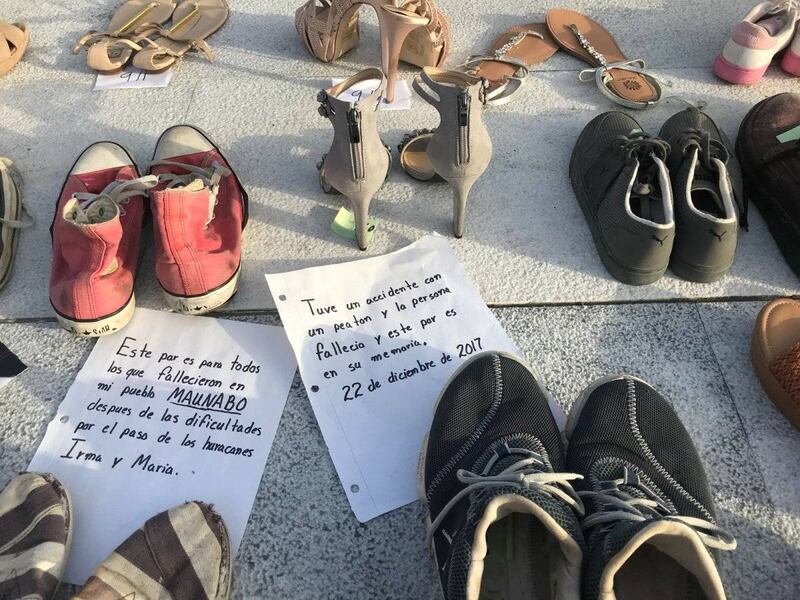 9/11
9/
Este par es para todos
los que fallecieron en
mi pueblo MAUNABO
despues de las dificultades
por el paso de los huracanes
Irma y Maria.
Tuve un accidente con
un peaton y la persona
fallecio y este par es
en su memoria.
22 de diciembre de 2017